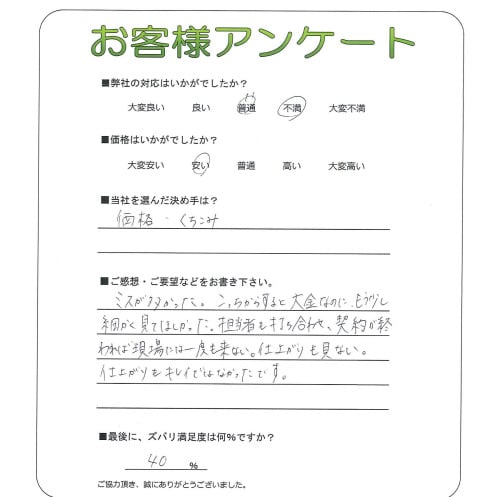 お客様アンケート
■弊社の対応はいかがでしたか？
大変良い 良い 普通 不満 大変不満
■価格はいかがでしたか？
大変安い 安い 普通 高い 大変高い
■当社を選んだ決め手は？
価格・くちこみ
■ご感想・ご要望などをお書き下さい。
ミスが多かった。こっちからすると大金なのに、もう少し
細かく見てほしかった。担当者も打ち合わせ、契約が終
われば現場には一度も来ない。仕上がりも見ない。
仕上がりもキレイではなかったです。
■最後に、ズバリ満足度は何%ですか？
40 %
ご協力頂き、誠にありがとうございました。